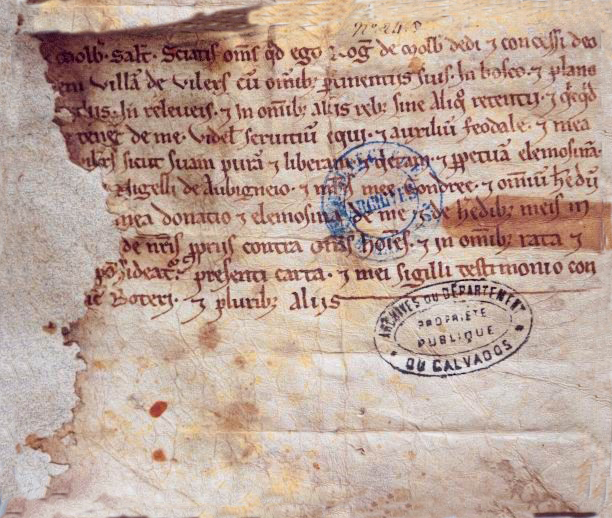 nº 24.8
Molb. Salt. Sciatis oms qd ego Rog de Molb dedi ⁊ concessi deo
villā de Vilers cū omib; ptinentiis suis. In bosco. ⁊ plano
In releveis. ⁊ In omib; aliis reb; sine Aliq retentu. ⁊ qcqd
tenet de me. Videl servitiū equi. ⁊ auxiliū feodale. ⁊ mea
sicut suam purā ⁊ liberam ⁊ ppetuā elemosinā.
Nigelli de Aubigneio. ⁊ mris mee Gondree. ⁊ omniū hedū
mea donatio ⁊ elemosina de me ⁊ de hedib; meis in
de nris ppriis contra oms hoies. ⁊ in omib; rata ⁊
possideat. presenti carta. ⁊ mei sigilli testimonio con
Boteri. ⁊ plurib; Aliis
ARCHIVES
ARCHIVES DU DÉPARTEMENT
PROPRIÉTÉ
PUBLIQUE
DU CALVADOS